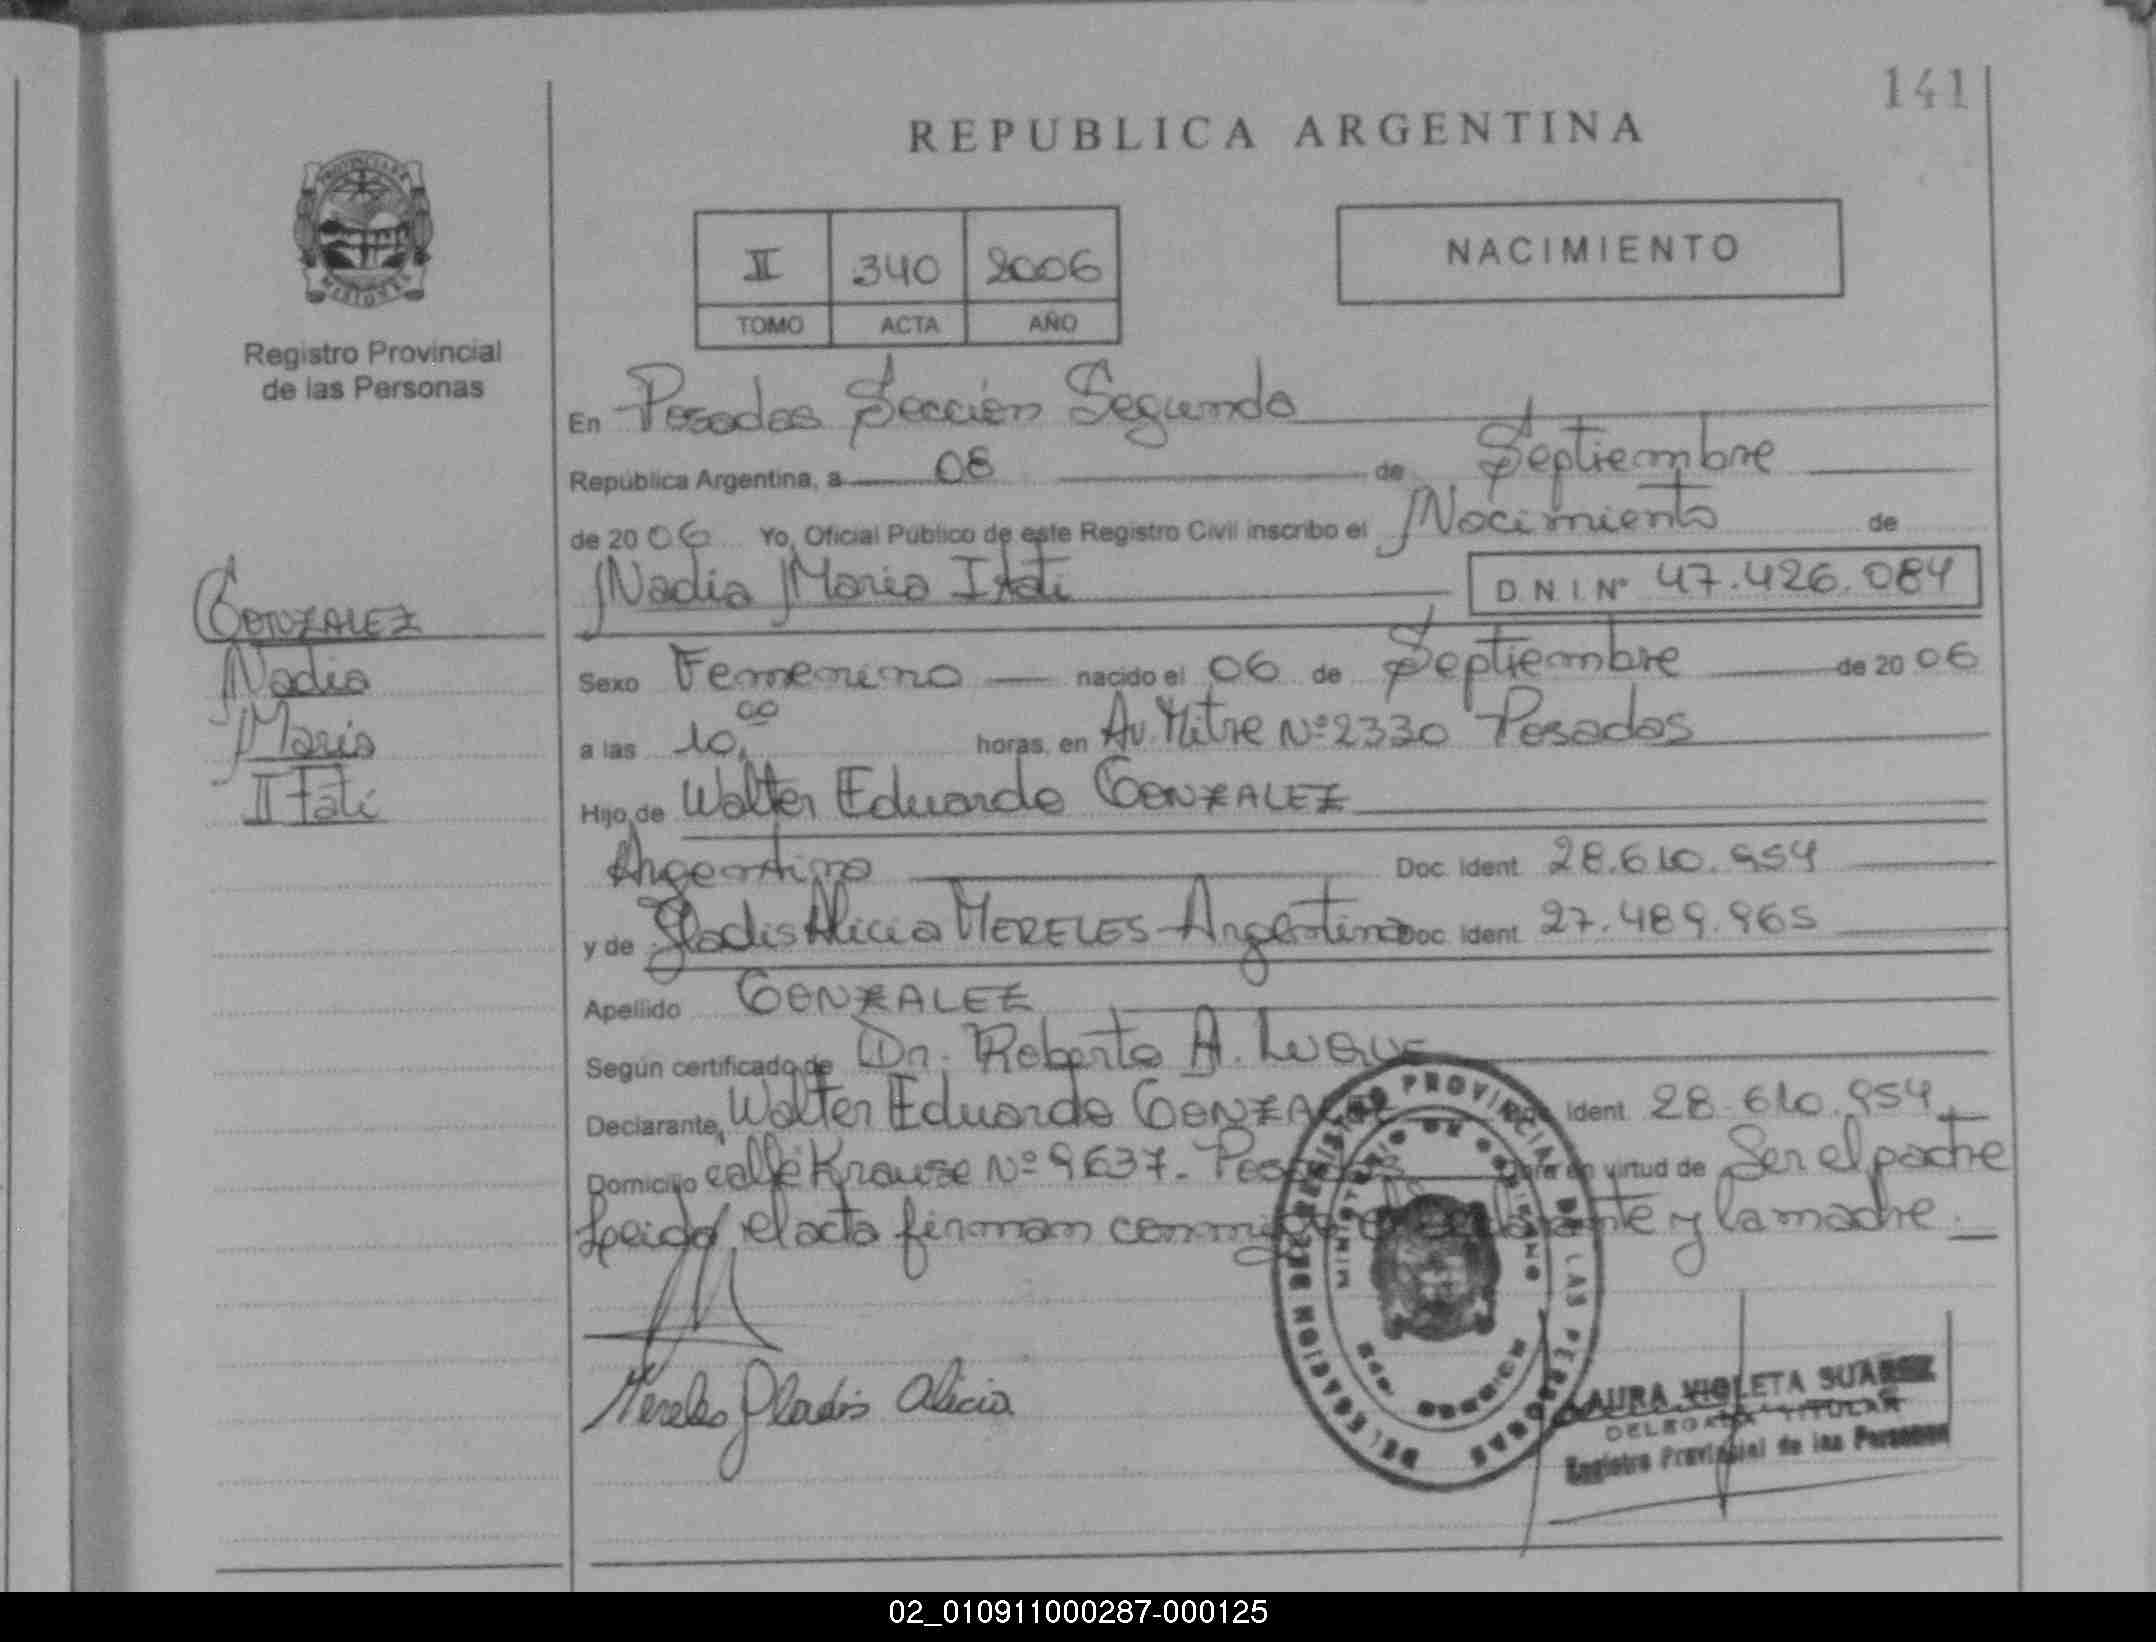 141
REPUBLICA ARGENTINA
PROVINCIA DE
MISIONES
Registro Provincial
de las Personas
II 340 2006
TOMO ACTA AÑO
NACIMIENTO
En Posadas Sección Segunda
República Argentina, a 08 de Septiembre
de 2006 Yo, Oficial Público de este Registro Civil inscribo el Nacimiento de
Nadia Maria Itati D N I. Nº 47.426.084
GONZALEZ
Nadia
Maria
Itati
Sexo Femenino nacido el 06 de Septiembre de 2006
a las 10,00 horas, en Av. Mitre Nº 2330 Posadas
Hijo de Walter Eduardo GONZALEZ
Argentino Doc. Ident. 28.610.954
y de Gladis Alicia MERELES - Argentina Doc. Ident. 27.489.965
Apellido GONZALEZ
Según certificado de Dr. Roberto A. Luque
Declarante, Walter Eduardo GONZALEZ Doc. Ident. 28.610.954
Domicilio calle Krause Nº 9637 - Posadas Obra en virtud de Ser el padre
Leida el acta firman conmigo el declarante y la madre.
Mereles Gladis Alicia
DELEGACION DEL REGISTRO PROVINCIAL DE LAS PERSONAS
MINISTERIO DE GOBIERNO
MISIONES
LAURA VIOLETA SUAREZ
DELEGADA TITULAR
Registro Provincial de las Personas
02_010911000287-000125